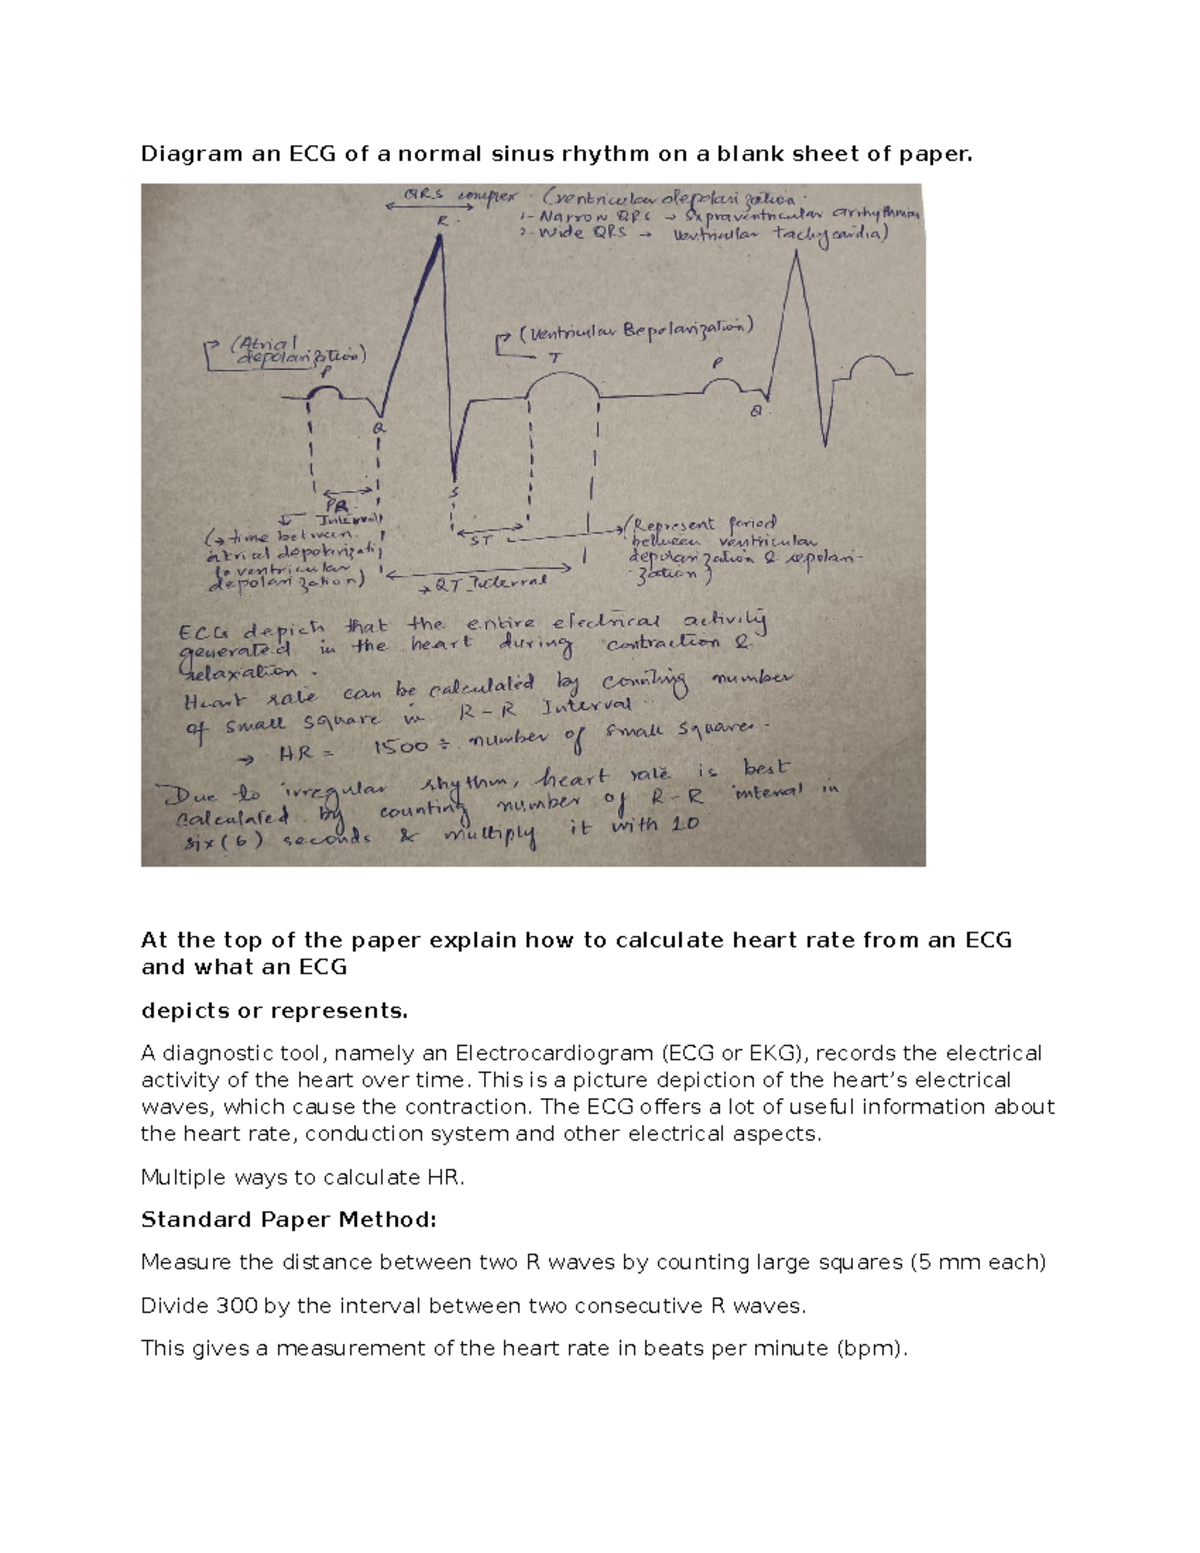 Diagram an ECG of a normal sinus rhythm on a blank sheet of paper.
QRS complex - (ventricular depolarization.
R.
1- Narrow QRS → Supraventricular arrhythmia
2- Wide QRS → Ventricular tachycardia)
(Atrial
depolarization)
P
(Ventricular Bepolarization)
T
P
Q
Q
S
PR
Interval
(→ time between
atrial depolarizati
to ventricular
depolarization)
ST
(Represent period
between ventricular
depolarization & repolari-
zation)
→ QT Interval
ECG depicts that the entire electrical activity
generated in the heart during contraction &
relaxation.
Heart rate can be calculated by counting number
of small square in R-R Interval.
→ HR = 1500 ÷ number of small square.
Due to irregular rhythm, heart rate is best
calculated by counting number of R-R interval in
six(6) seconds & multiply it with 10
At the top of the paper explain how to calculate heart rate from an ECG
and what an ECG
depicts or represents.
A diagnostic tool, namely an Electrocardiogram (ECG or EKG), records the electrical
activity of the heart over time. This is a picture depiction of the heart’s electrical
waves, which cause the contraction. The ECG offers a lot of useful information about
the heart rate, conduction system and other electrical aspects.
Multiple ways to calculate HR.
Standard Paper Method:
Measure the distance between two R waves by counting large squares (5 mm each)
Divide 300 by the interval between two consecutive R waves.
This gives a measurement of the heart rate in beats per minute (bpm).